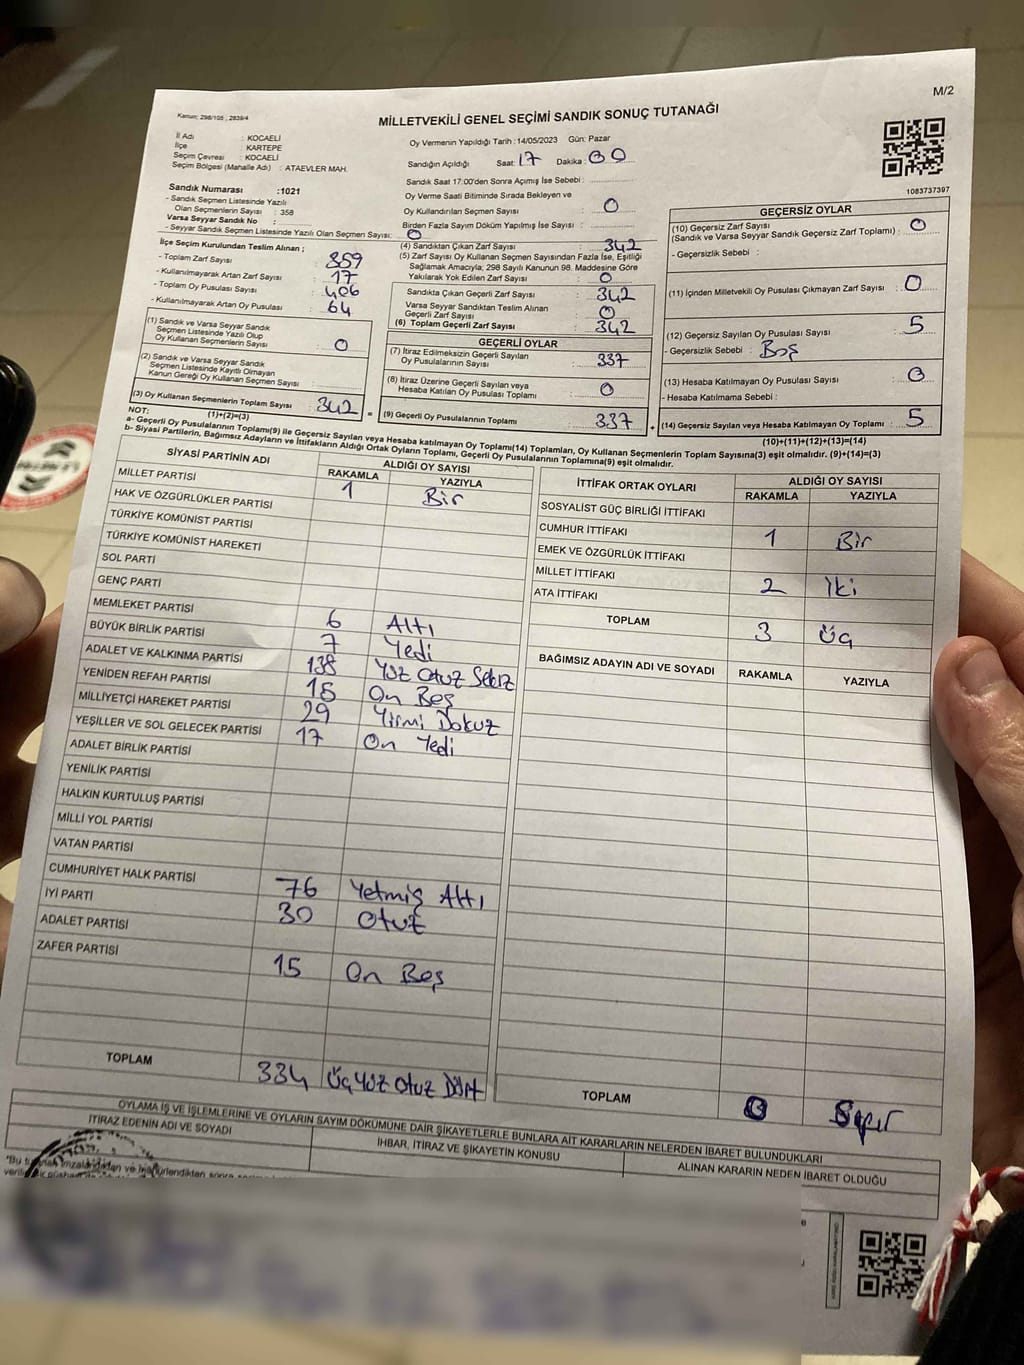 M/2
Kanun: 298/105 , 2839/4
MİLLETVEKİLİ GENEL SEÇİMİ SANDIK SONUÇ TUTANAĞI
İl Adı : KOCAELİ
İlçe : KARTEPE
Seçim Çevresi : KOCAELİ
Seçim Bölgesi (Mahalle Adı) : ATAEVLER MAH.
Oy Vermenin Yapıldığı Tarih :14/05/2023 Gün: Pazar
Sandığın Açıldığı Saat: 17 Dakika: 00
Sandık Saat 17:00'den Sonra Açımış İse Sebebi :
Oy Verme Saati Bitiminde Sırada Bekleyen ve
Oy Kullandırılan Seçmen Sayısı : 0
Birden Fazla Sayım Dökümü Yapılmış İse Sayısı :
1083737397
Sandık Numarası :1021
- Sandık Seçmen Listesinde Yazılı
Olan Seçmenlerin Sayısı : 358
Varsa Seyyar Sandık No :
- Seyyar Sandık Seçmen Listesinde Yazılı Olan Seçmen Sayısı: 0
İlçe Seçim Kurulundan Teslim Alınan ;
- Toplam Zarf Sayısı : 359
- Kullanılmayarak Artan Zarf Sayısı : 17
- Toplam Oy Pusulası Sayısı : 406
- Kullanılmayarak Artan Oy Pusulası : 64
(1) Sandık ve Varsa Seyyar Sandık
Seçmen Listesinde Yazılı Olup
Oy Kullanan Seçmenlerin Sayısı : 0
(2) Sandık ve Varsa Seyyar Sandık
Seçmen Listesinde Kayıtlı Olmayan
Kanun Gereği Oy Kullanan Seçmen Sayısı :
(3) Oy Kullanan Seçmenlerin Toplam Sayısı : 342
(1)+(2)=(3)
(4) Sandıktan Çıkan Zarf Sayısı : 342
(5) Zarf Sayısı Oy Kullanan Seçmen Sayısından Fazla İse, Eşitliği
Sağlamak Amacıyla; 298 Sayılı Kanunun 98. Maddesine Göre
Yakılarak Yok Edilen Zarf Sayısı : 0
Sandıkta Çıkan Geçerli Zarf Sayısı : 342
Varsa Seyyar Sandıktan Teslim Alınan
Geçerli Zarf Sayısı : 0
(6) Toplam Geçerli Zarf Sayısı : 342
GEÇERLİ OYLAR
(7) İtiraz Edilmeksizin Geçerli Sayılan
Oy Pusulalarının Sayısı : 337
(8) İtiraz Üzerine Geçerli Sayılan veya
Hesaba Katılan Oy Pusulası Toplamı : 0
= (9) Geçerli Oy Pusulalarının Toplamı : 337
GEÇERSİZ OYLAR
(10) Geçersiz Zarf Sayısı
(Sandık ve Varsa Seyyar Sandık Geçersiz Zarf Toplamı) : 0
- Geçersizlik Sebebi :
(11) İçinden Milletvekili Oy Pusulası Çıkmayan Zarf Sayısı : 0
(12) Geçersiz Sayılan Oy Pusulası Sayısı : 5
- Geçersizlik Sebebi : Boş
(13) Hesaba Katılmayan Oy Pusulası Sayısı : 0
- Hesaba Katılmama Sebebi :
+ (14) Geçersiz Sayılan veya Hesaba Katılmayan Oy Pusulası Toplamı : 5
(10)+(11)+(12)+(13)=(14)
NOT:
a- Geçerli Oy Pusulalarının Toplamı(9) ile Geçersiz Sayılan veya Hesaba katılmayan Oy Toplamı(14) Toplamları, Oy Kullanan Seçmenlerin Toplam Sayısına(3) eşit olmalıdır. (9)+(14)=(3)
b- Siyasi Partilerin, Bağımsız Adayların ve İttifakların Aldığı Ortak Oyların Toplamı, Geçerli Oy Pusulalarının Toplamına(9) eşit olmalıdır.
SİYASİ PARTİNİN ADI ALDIĞI OY SAYISI
RAKAMLA YAZIYLA
MİLLET PARTİSİ 1 Bir
HAK VE ÖZGÜRLÜKLER PARTİSİ
TÜRKİYE KOMÜNİST PARTİSİ
TÜRKİYE KOMÜNİST HAREKETİ
SOL PARTİ
GENÇ PARTİ
MEMLEKET PARTİSİ 6 Altı
BÜYÜK BİRLİK PARTİSİ 7 Yedi
ADALET VE KALKINMA PARTİSİ 138 Yüz Otuz Sekiz
YENİDEN REFAH PARTİSİ 15 On Beş
MİLLİYETÇİ HAREKET PARTİSİ 29 Yirmi Dokuz
YEŞİLLER VE SOL GELECEK PARTİSİ 17 On Yedi
ADALET BİRLİK PARTİSİ
YENİLİK PARTİSİ
HALKIN KURTULUŞ PARTİSİ
MİLLİ YOL PARTİSİ
VATAN PARTİSİ
CUMHURİYET HALK PARTİSİ 76 Yetmiş Altı
İYİ PARTİ 30 Otuz
ADALET PARTİSİ
ZAFER PARTİSİ 15 On Beş
TOPLAM 334 Üç Yüz Otuz Dört
İTTİFAK ORTAK OYLARI ALDIĞI OY SAYISI
RAKAMLA YAZIYLA
SOSYALİST GÜÇ BİRLİĞİ İTTİFAKI
CUMHUR İTTİFAKI 1 Bir
EMEK VE ÖZGÜRLÜK İTTİFAKI
MİLLET İTTİFAKI 2 İki
ATA İTTİFAKI
TOPLAM 3 Üç
BAĞIMSIZ ADAYIN ADI VE SOYADI RAKAMLA YAZIYLA
TOPLAM 0 Sıfır
OYLAMA İŞ VE İŞLEMLERİNE VE OYLARIN SAYIM DÖKÜMÜNE DAİR ŞİKAYETLERLE BUNLARA AİT KARARLARIN NELERDEN İBARET BULUNDUKLARI
İTİRAZ EDENİN ADI VE SOYADI
İHBAR, İTİRAZ VE ŞİKAYETİN KONUSU
ALINAN KARARIN NEDEN İBARET OLDUĞU